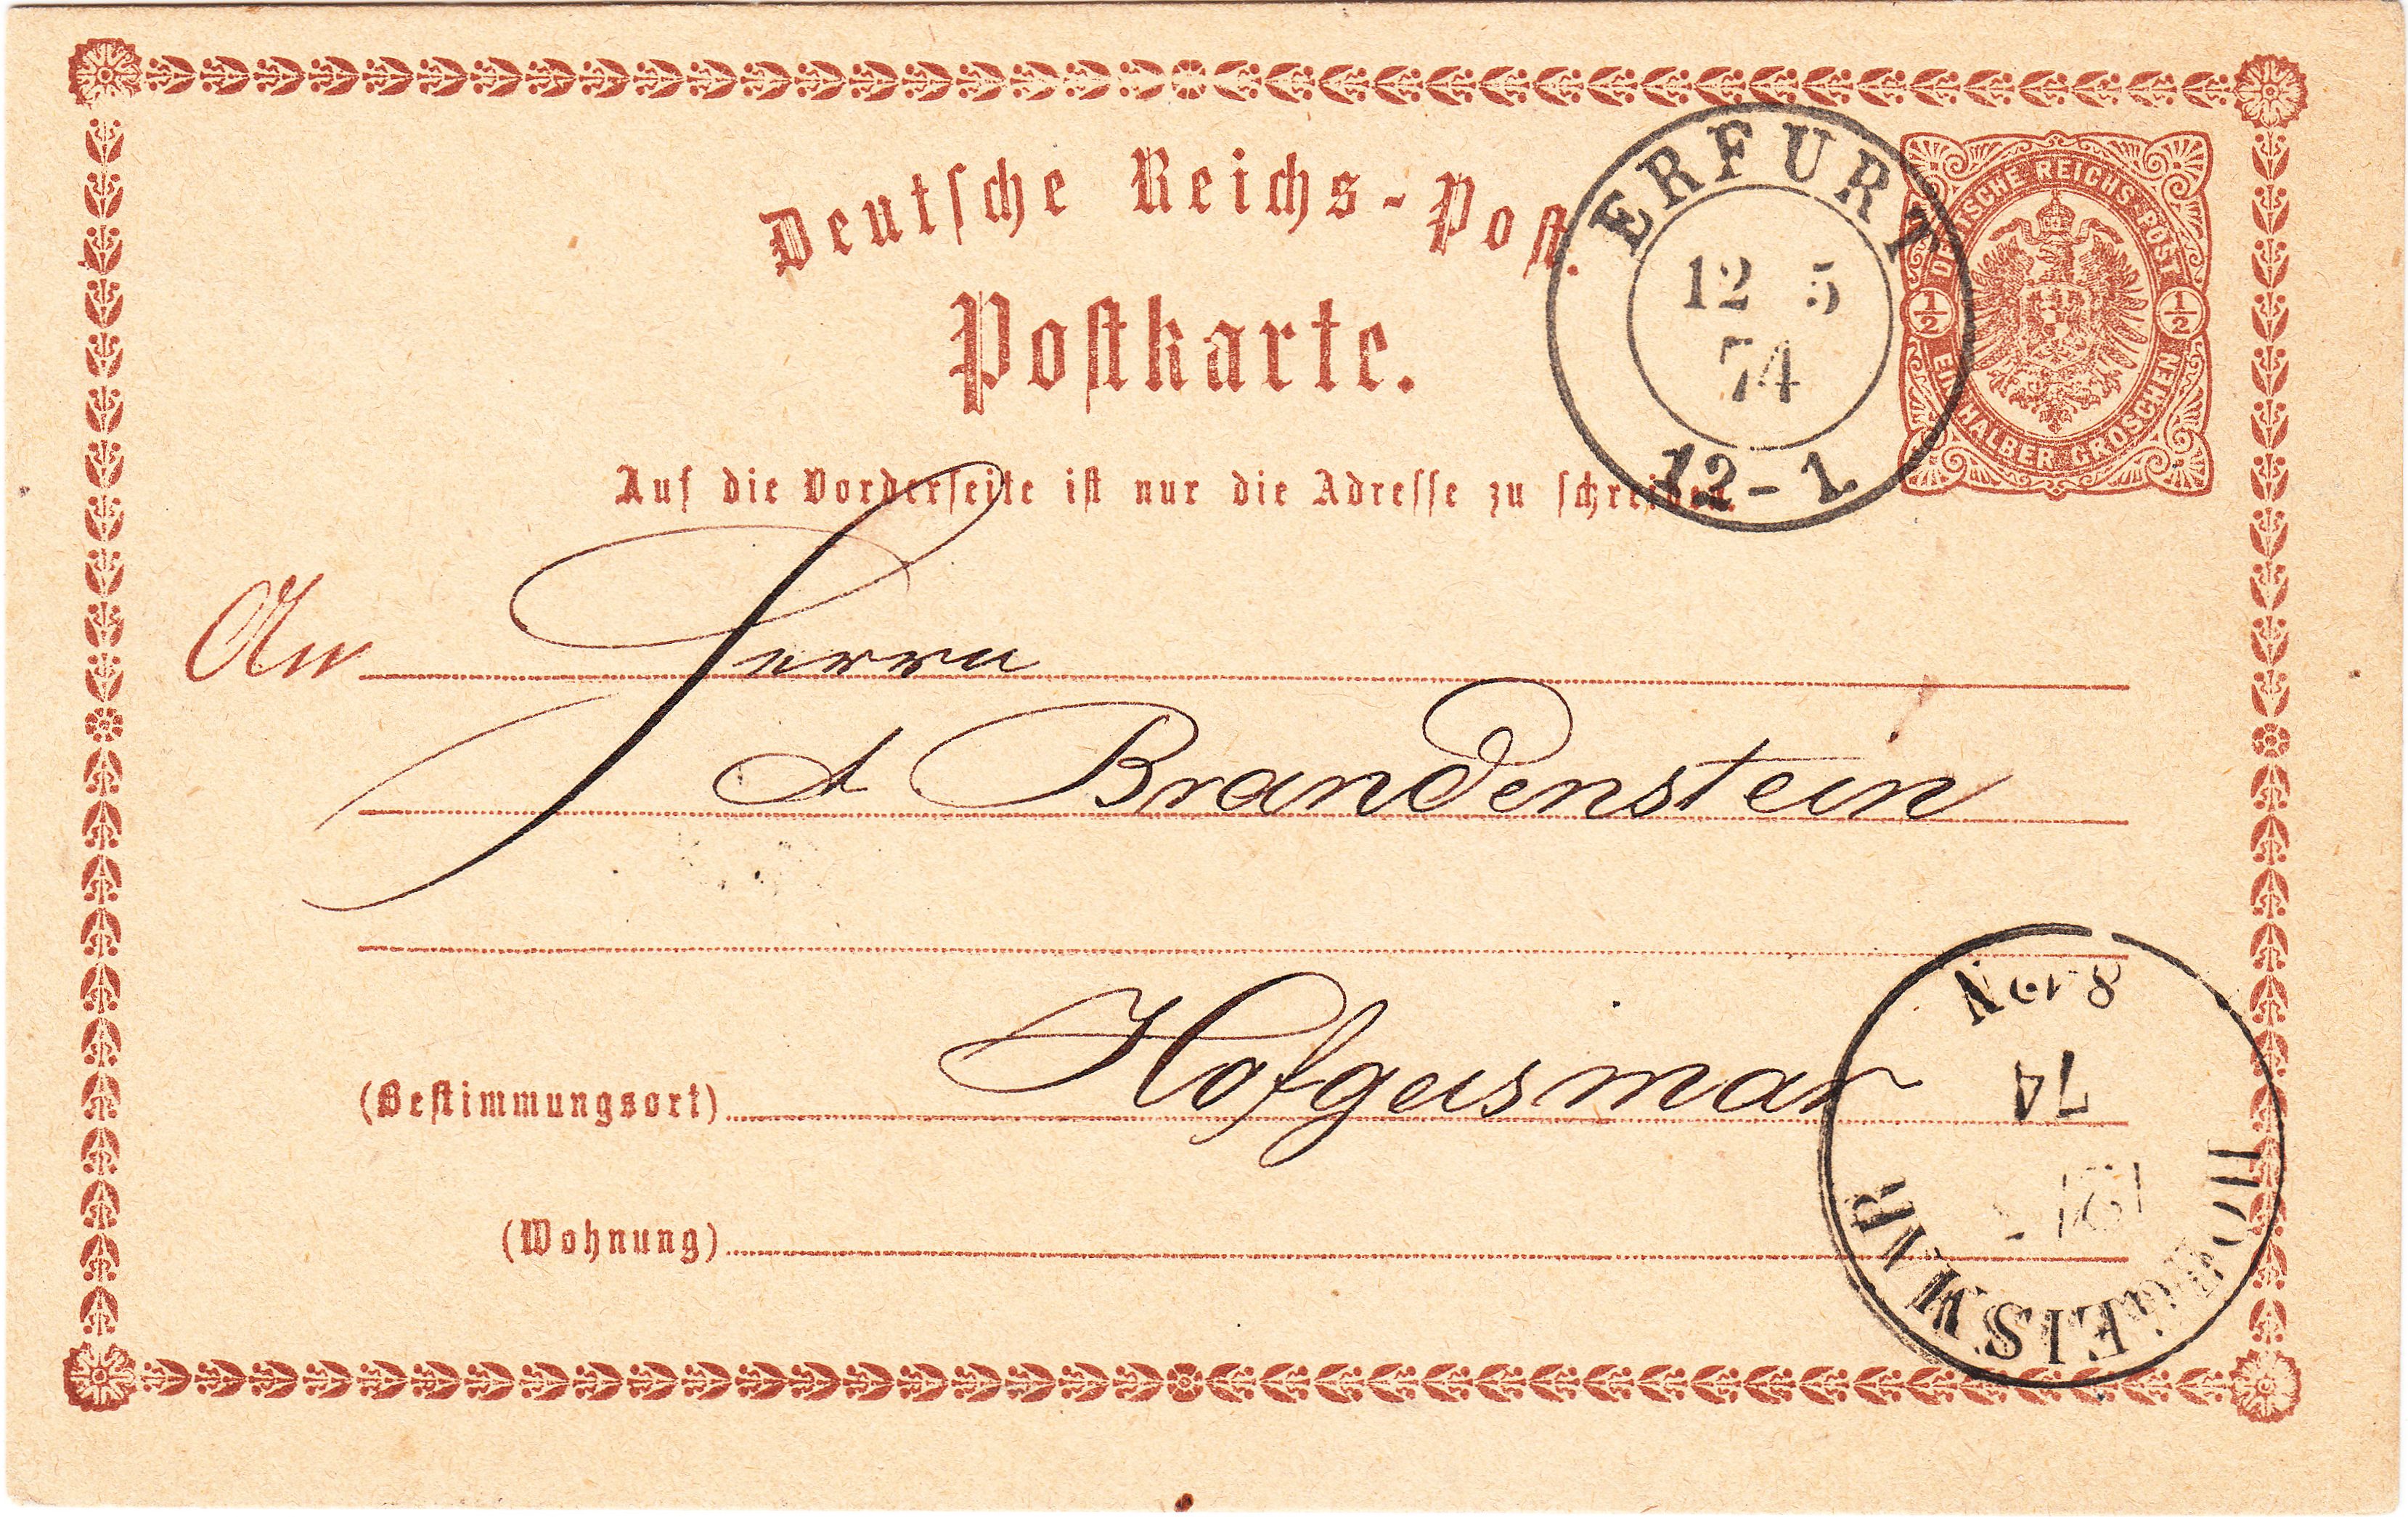 Deutsche Reichs-Post.
Postkarte.
ERFURT
12 5
74
12-1.
DEUTSCHE REICHS-POST
1/2 1/2
EIN HALBER GROSCHEN
Auf die Vorderseite ist nur die Adresse zu schreiben.
An Herrn
A Brandenstein
(Bestimmungsort) Hofgeismar
(Wohnung)
HOFGEISMAR
74